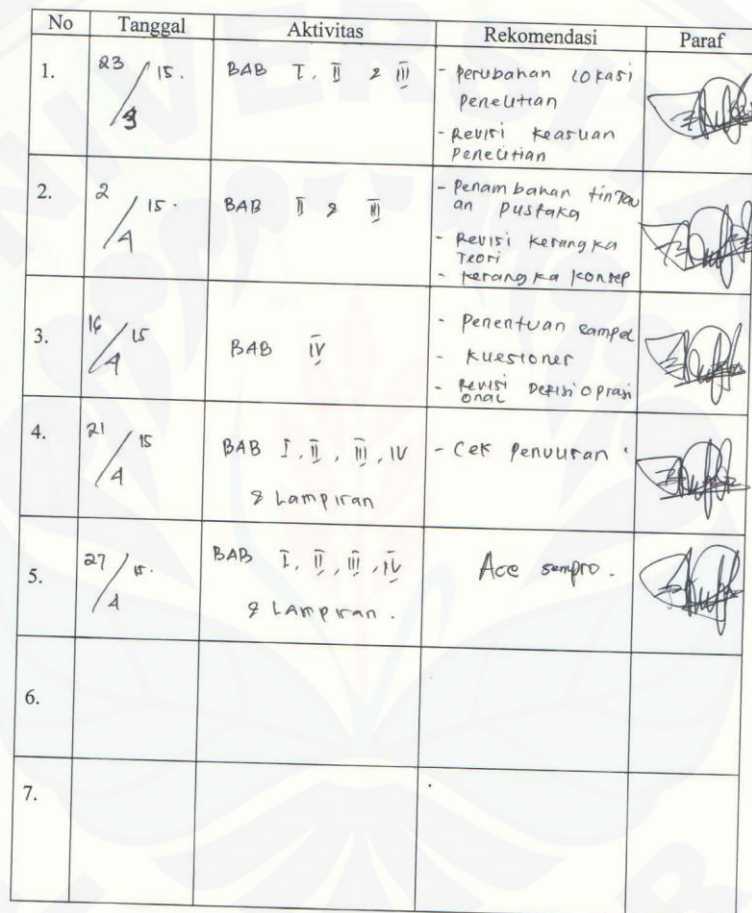 No Tanggal Aktivitas Rekomendasi Paraf
1. 23/3 15. BAB I, II & III - Perubahan Lokasi
Penelitian
- Revisi Keasluan
Penelitian
2. 2/4 15. BAB II & III - Penambahan tinjau
an pustaka
- Revisi kerangka
Teori
- kerangka konsep
3. 16/4 15 BAB IV - Penentuan sampel
- Kuesioner
- Revisi Defisi oprasi
onal
4. 21/4 15 BAB I, II, III, IV - Cek Penulisan
& Lampiran
5. 27/4 15. BAB I, II, III, IV Acc sempro.
& Lampiran.
6.
7.
UNIVERSITA